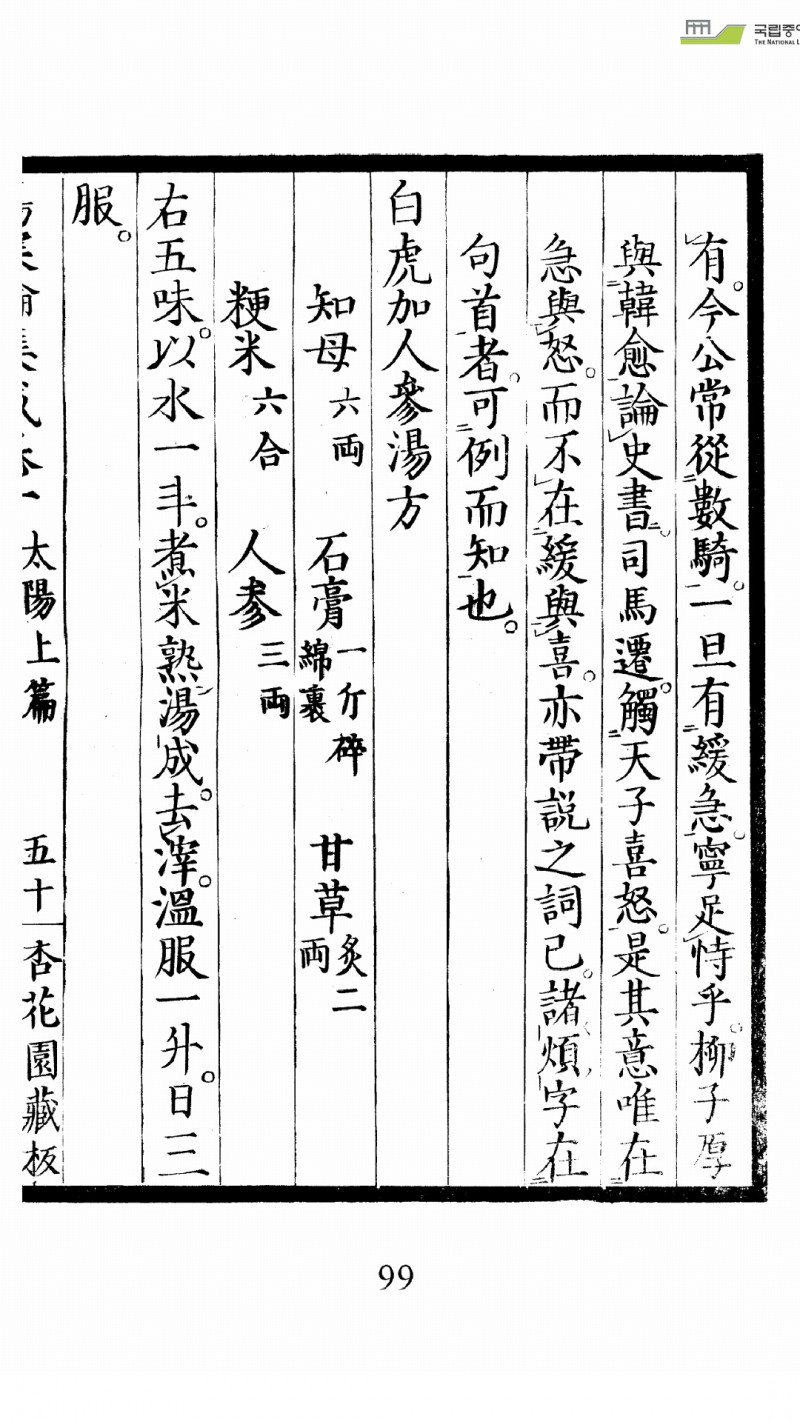 국립중
THE NATIONAL L
有。今公常從數騎。一旦有緩急。寧足恃乎。柳子厚
與韓愈論史書。司馬遷。觸天子喜怒。是其意唯在
急與怒。而不在緩與喜。亦帶説之詞已。諸煩字在
句首者。可例而知也。
白虎加人參湯方
知母六両 石膏一斤碎綿裏 甘草炙二両
粳米六合 人參三両
右五味。以水一斗。煮米熟湯成。去滓。溫服一升。日三
服。
太陽上篇 五十一 杏花園藏板
99